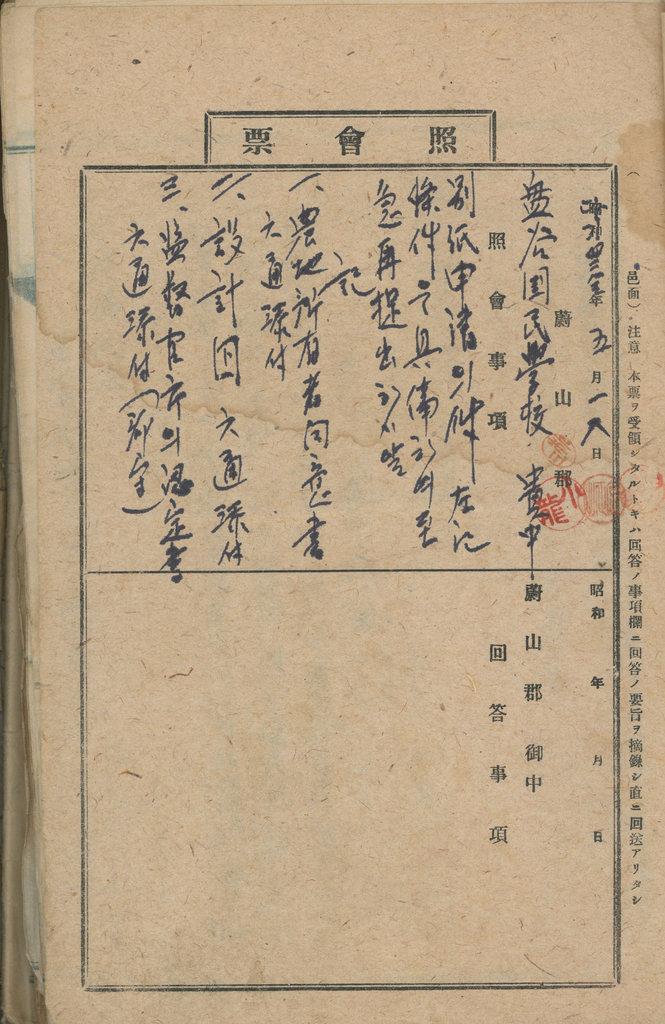 照會票
(邑面) 注意 本票ヲ受領シタルトキハ回答ノ事項欄ニ回答ノ要旨ヲ摘錄シ直ニ回送アリタシ
年五月一八日
蔚山郡
國民學校 貴中
照會事項
別紙申請의件 左記
條件을具備하여至
急再提出하
記
一、農地所有者同意書
六通添付
二、設計図 六通添付
三、監督官庁의認定書
六通添付
昭和 年 月 日
蔚山郡御中
回答事項